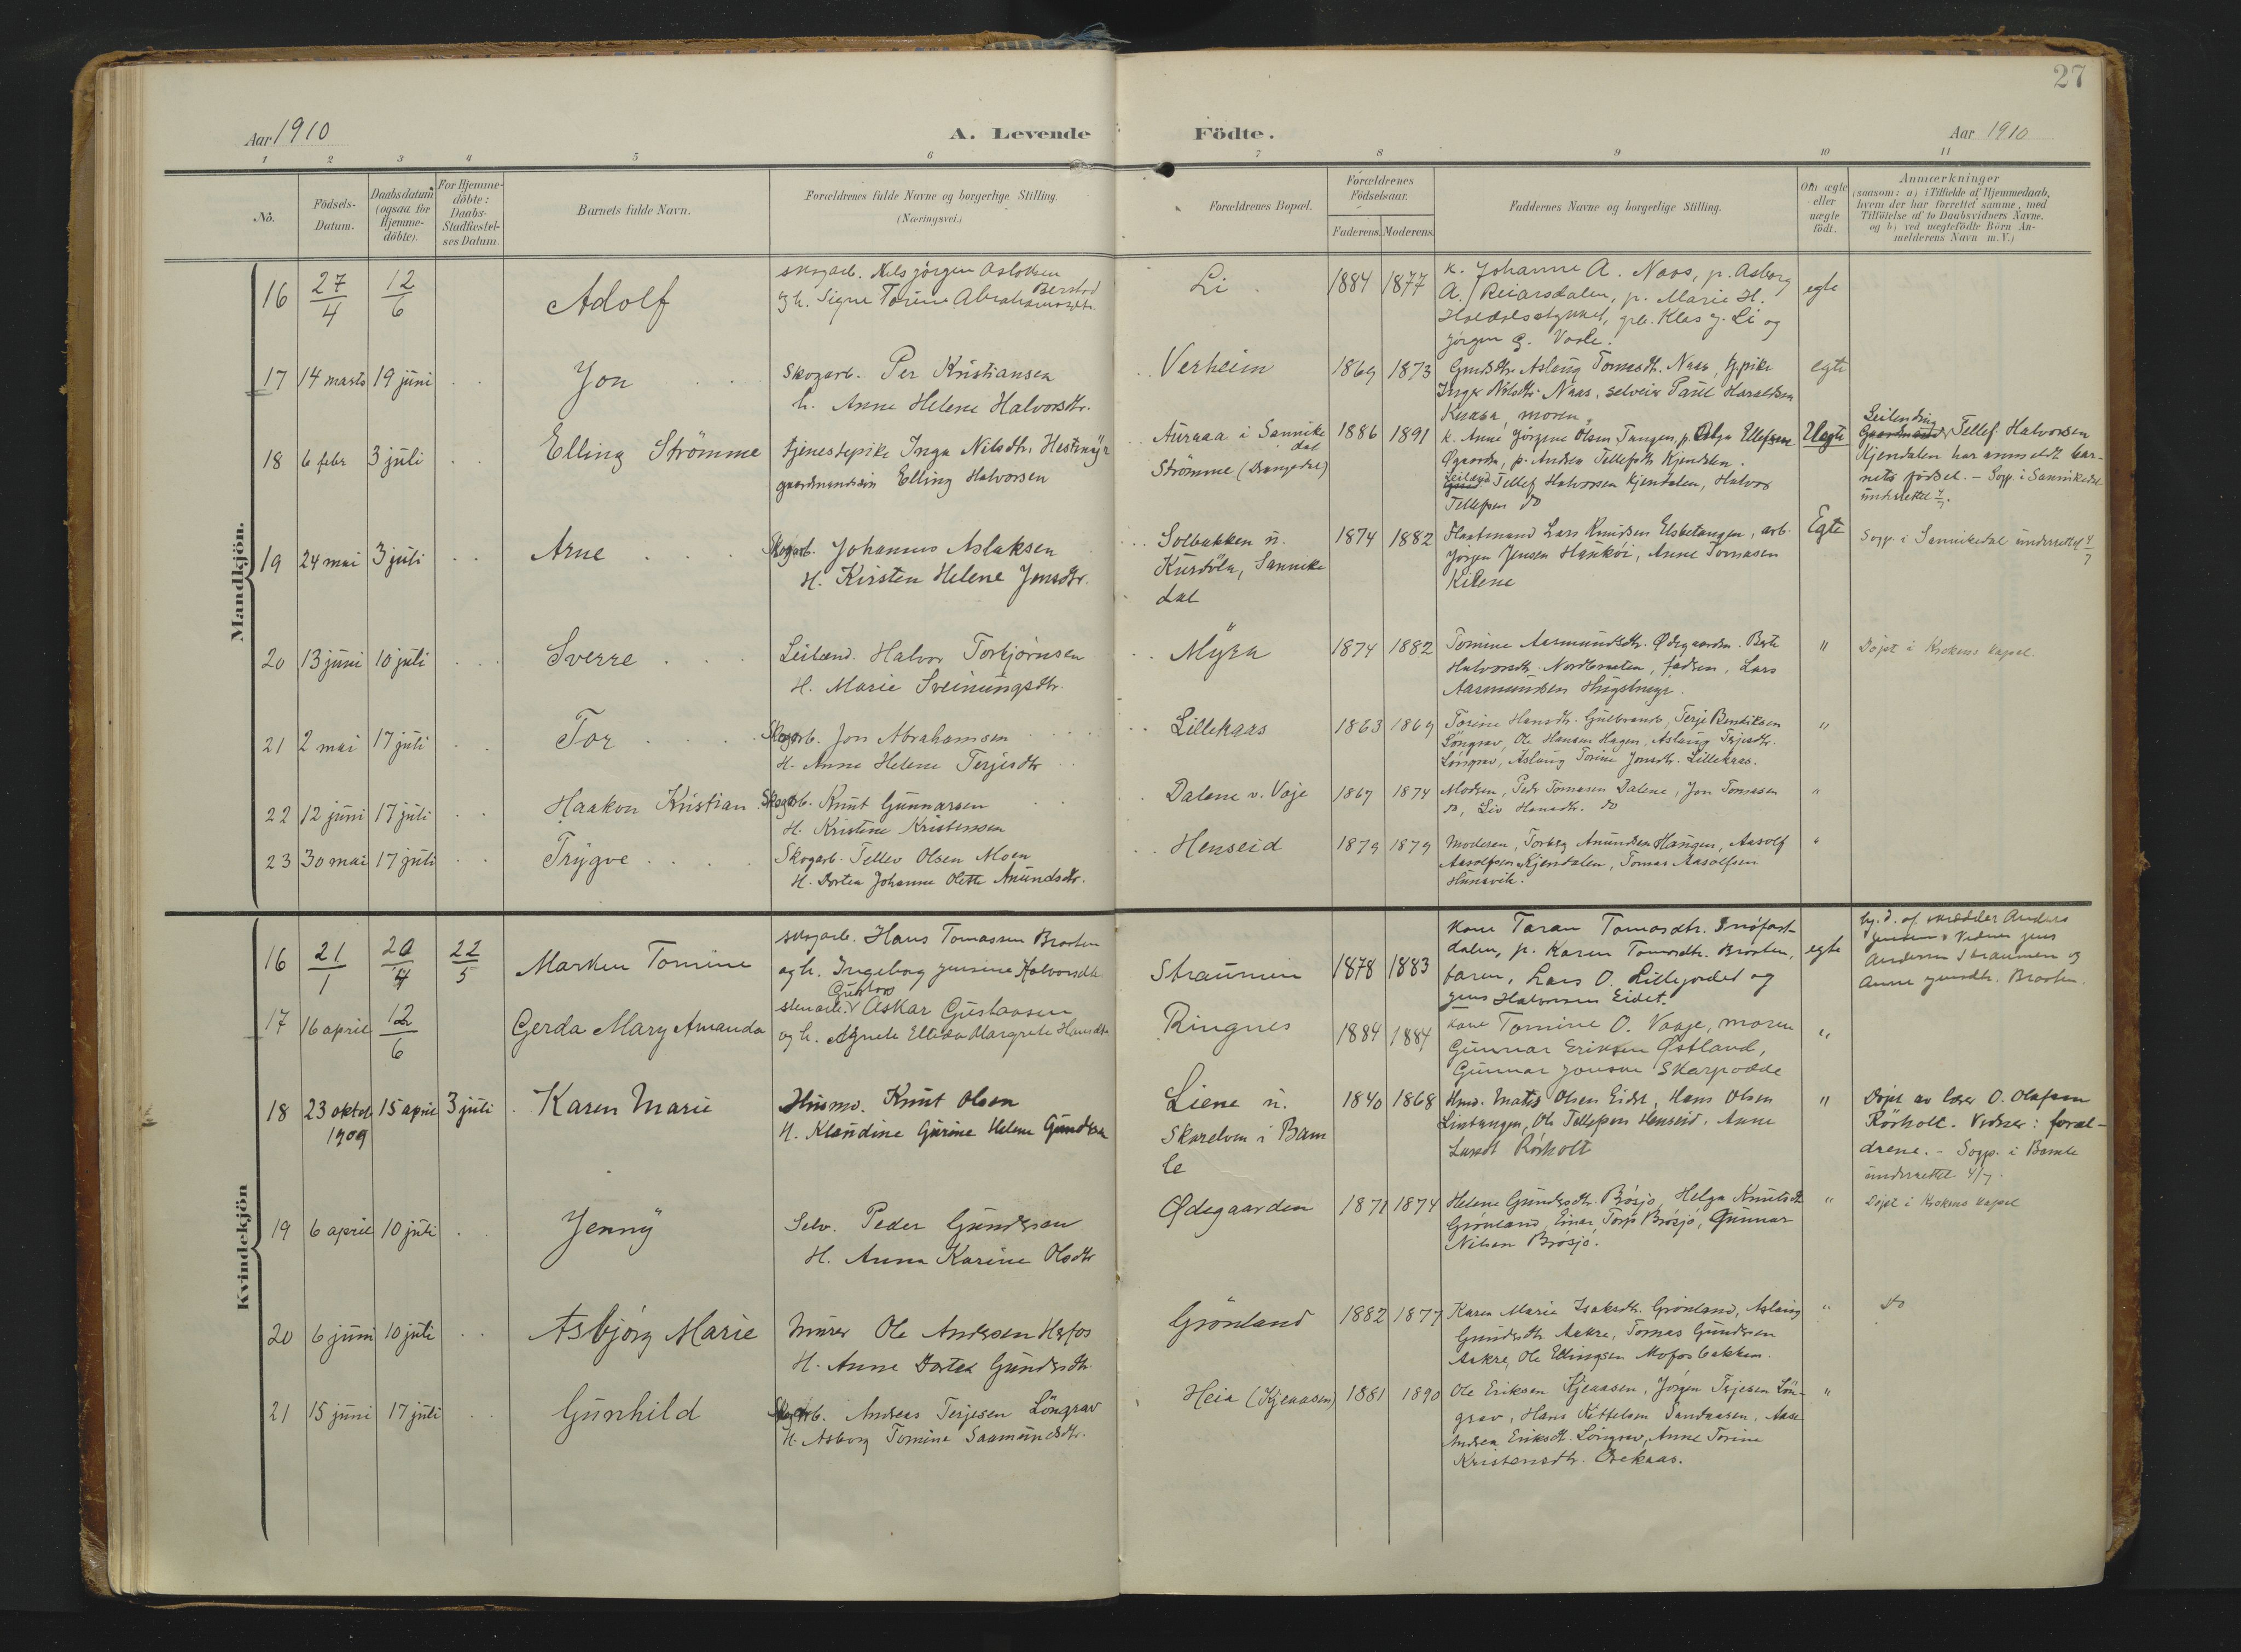 27
Aar 1910
A. Levende Födte.
Aar 1910
1 2 3 4 5 6 7 8 9 10 11
No.
Födsels-Datum.
Daabsdatum (ogsaa for Hjemme-döbte).
For Hjemme-döbte: Daabs-Stadfæstel-ses Datum.
Barnets fulde Navn.
Forældrenes fulde Navne og borgerlige Stilling.
(Næringsvei.)
Forældrenes Bopæl.
Forældrenes Födselsaar.
Faderens. Moderens.
Faddernes Navne og borgerlige Stilling.
Om ægte eller uægte födt.
Anmærkninger
(saasom: a) i Tilfælde af Hjemmedaab,
hvem der har forrettet samme, med
Tilföielse af to Daabsvidners Navne.
og b) ved uægtefödte Börn An-
melderens Navn m. V.)
Mandkjön.
16 27/4 12/6 Adolf
skogarb. Nils Jörgen Aslaksen Berstad
og h. Signe Torine Abrahamsdtr.
Li 1884 1877
k. Johanne A. Naas, p. Asborg
A. Reiarsdalen, p. Marie H.
grb. Klas J. Li og
Jörgen G. Vaale.
egte
17 14 marts 19 juni Jon
Skogarb. Per Kristiansen
h. Anne Helene Halvorsdtr.
Verheim 1869 1873
Gmdsdtr. Aslaug Tomasdtr. Naas, tj.pike
Inger Nilsdtr. Naas, selveier Paul Haraldsen
moren.
egte
18 6 febr 3 juli Elling Strömme
tjenestepike Inga Nilsdtr. Hestmyr
gaardmandssön Elling Halvorsen
Auraaa i Sannikedal
Strömme (Drangedal)
1886 1891
k. Anne Jörgine Olsen Tangen, p. Olga Ellefsen
Øgaarden, p. Andrea Tellefsdtr. Kjendalen.
Leilænd. Tellef Halvorsen Kjendalen, Halvor
Tellefsen do
Uegte
Leilænding Tellef Halvorsen
Kjendalen har anmeldt bar-
nets födsel. - Sogp. i Sannikedal
underrettet 4/7.
19 24 mai 3 juli Arne
Skogarb. Johannes Aslaksen
H. Kirsten Helene Jensdtr.
Solbakken u.
Kurdöla, Sannike
dal
1874 1882
Flaatmand Lars Knudsen Elsbetangen, arb.
Jörgen Jensen Hauköi, Anne Tomasen
Kilene
Egte
Sogp. i Sannikedal underrettet 4/7
20 13 juni 10 juli Sverre
Leilænd. Halvor Torbjörnsen
H. Marie Sveinungsdtr.
Myra 1874 1882
Tomine Aasmundsdtr. Ødegaarden. Berte
Halvorsdtr. Nordbraaten, fadren, Lars
Aasmundsen Hugstmyr.
"
Döpt i Krokens kapel.
21 2 mai 17 juli Tor
Skogarb. Jon Abrahamsen
H. Anne Helene Terjesdtr
Lillekaas 1863 1869
Torine Hansdtr. Gulbrands, Terje Bendiksen
Löngrav, Ole Hansen Hagen, Aslaug Terjesdtr.
Löngrav, Aslaug Torine Jonsdtr. Lillekaas.
"
22 12 juni 17 juli Haakon Kristian
Skogarb. Knut Gunnarsen
H. Kristine Kristensen
Dalene v. Voje 1867 1874
Modren, Peder Tomasen Dalene, Jon Tomasen
do, Liv Hansdtr. do
"
23 30 mai 17 juli Trygve
Skogarb. Tellev Olsen Moen
H. Dortea Johanne Olette Anundsdtr.
Henseid 1879 1879
Moderen, Torberg Anundsen Haugen, Aasolf
Aasolfsen Kjendalen, Tomas Aasolfsen
Hunsvik.
"
Kvindekjön
16 21/1 20/4 22/5 Marken Tomine
skogarb. Hans Tomassen Braaten
og h. Ingeborg Jensine Halvorsdtr
Straumen 1878 1883
Kone Taran Tomasdtr.
dalen, p. Karen Tomasdtr. Braaten,
faren, Lars O. Lillejordet og
Jens Halvorsen Eidet.
egte
hj. d. af skrædder Anders
Jensen. Vidner Jens
Andersen Straumen og
Anne Jensdtr. Braaten.
17 16 april 12/6 Gerda Mary Amanda
stenarb. Gustavs Askar Gustavsen
og h. Agnete Elise Margrete Hansdtr
Ringnes 1884 1884
Kone Tomine O. Vaaje, moren
Gunnar Eriksen Østland,
Gunnar Jonsen Skarpodde
"
18 23 oktob 1909 15 april 3 juli Karen Marie
Husmd. Knut Olsen
H. Klaudine Gurine Helene Gundersen
Liene u.
Skarelven i Bam
le
1840 1868
Hmd. Mates Olsen Eidet, Hans Olsen
Lintangen, Ole Tellefsen Henseid, Anne
Larsdt Rörholt
"
Döpt av lærer O. Olafsen
Rörholt. Vidner: foræl-
drene. - Sogp. i Bamle
underrettet 4/7.
19 6 april 10 juli Jenny
Selv. Peder Gundersen
H. Anna Karine Olsdtr
Ødegaarden 1871 1874
Helene Gundersdtr. Brösjö, Helga Knutsdtr
Grönland, Einar Torp Brösjö, Gunnar
Nilsen Brösjö.
"
Döpt i Krokens kapel
20 6 juni 10 juli Asbjörg Marie
Murer Ole Andersen Hæfos
H. Anne Dortea Gundersdtr.
Grönland 1882 1877
Karen Marie Isaksdtr. Grönland, Aslaug
Gundersdtr Aakre, Tomas Gundersen
Aakre, Ole Ellingsen Mofosbakken.
"
do
21 15 juni 17 juli Gunhild
Skogarb. Andreas Terjesen Löngrav
H. Asborg Tomine Saamundsdtr.
Heia (Kjeaasen) 1881 1890
Ole Eriksen Kjeaasen, Jörgen Terjesen Lön-
grav, Hans Kittelsen Sandaasen, Aase
Andrea Eriksdt. Löngrav, Anne Torine
Kristensdtr.
"